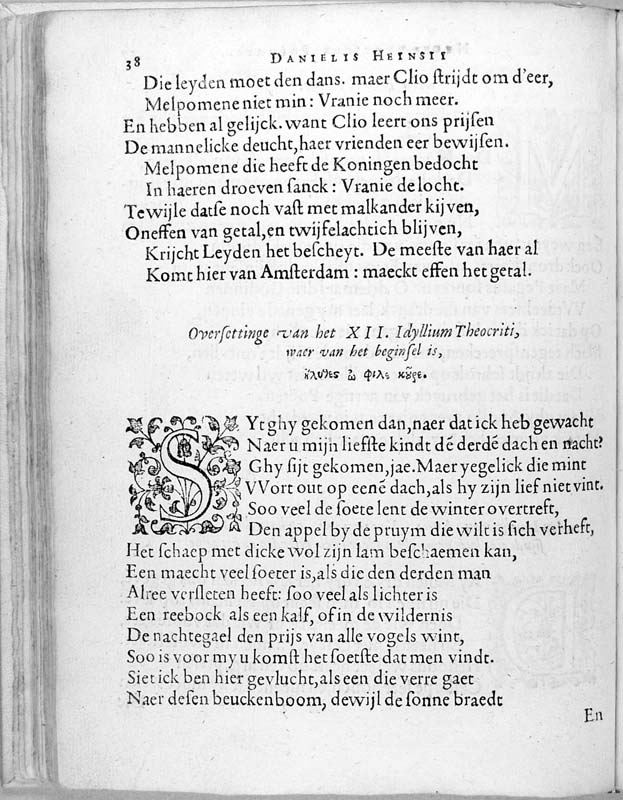 38 DANIELIS HEINSII
Die leyden moet den dans. maer Clio ſtrijdt om d'eer,
Melpomene niet min: Vranie noch meer.
En hebben al gelijck. want Clio leert ons prijſen
De mannelicke deucht, haer vrienden eer bewijſen.
Melpomene die heeft de Koningen bedocht
In haeren droeven ſanck: Vranie de locht.
Te wijle datſe noch vaſt met malkander kijven,
Oneffen van getal, en twijfelachtich blijven,
Krijcht Leyden het beſcheyt. De meeſte van haer al
Komt hier van Amſterdam: maeckt effen het getal.
Overſettinge van het XII. Idyllium Theocriti,
waer van het beginſel is,
ἤλυθες ὦ φίλε κοῦρε.
SYt ghy gekomen dan, naer dat ick heb gewacht
Naer u mijn liefſte kindt dē derdē dach en nacht?
Ghy ſijt gekomen, jae. Maer yegelick die mint
VVort out op eenē dach, als hy zijn lief niet vint.
Soo veel de ſoete lent de winter overtreft,
Den appel by de pruym die wilt is ſich verheft,
Het ſchaep met dicke wol zijn lam beſchaemen kan,
Een maecht veel ſoeter is, als die den derden man
Alree verſleten heeft: ſoo veel als lichter is
Een reebock als een kalf, of in de wildernis
De nachtegael den prijs van alle vogels wint,
Soo is voor my u komſt het ſoetſte dat men vindt.
Siet ick ben hier gevlucht, als een die verre gaet
Naer deſen beuckenboom, dewijl de ſonne braedt
En